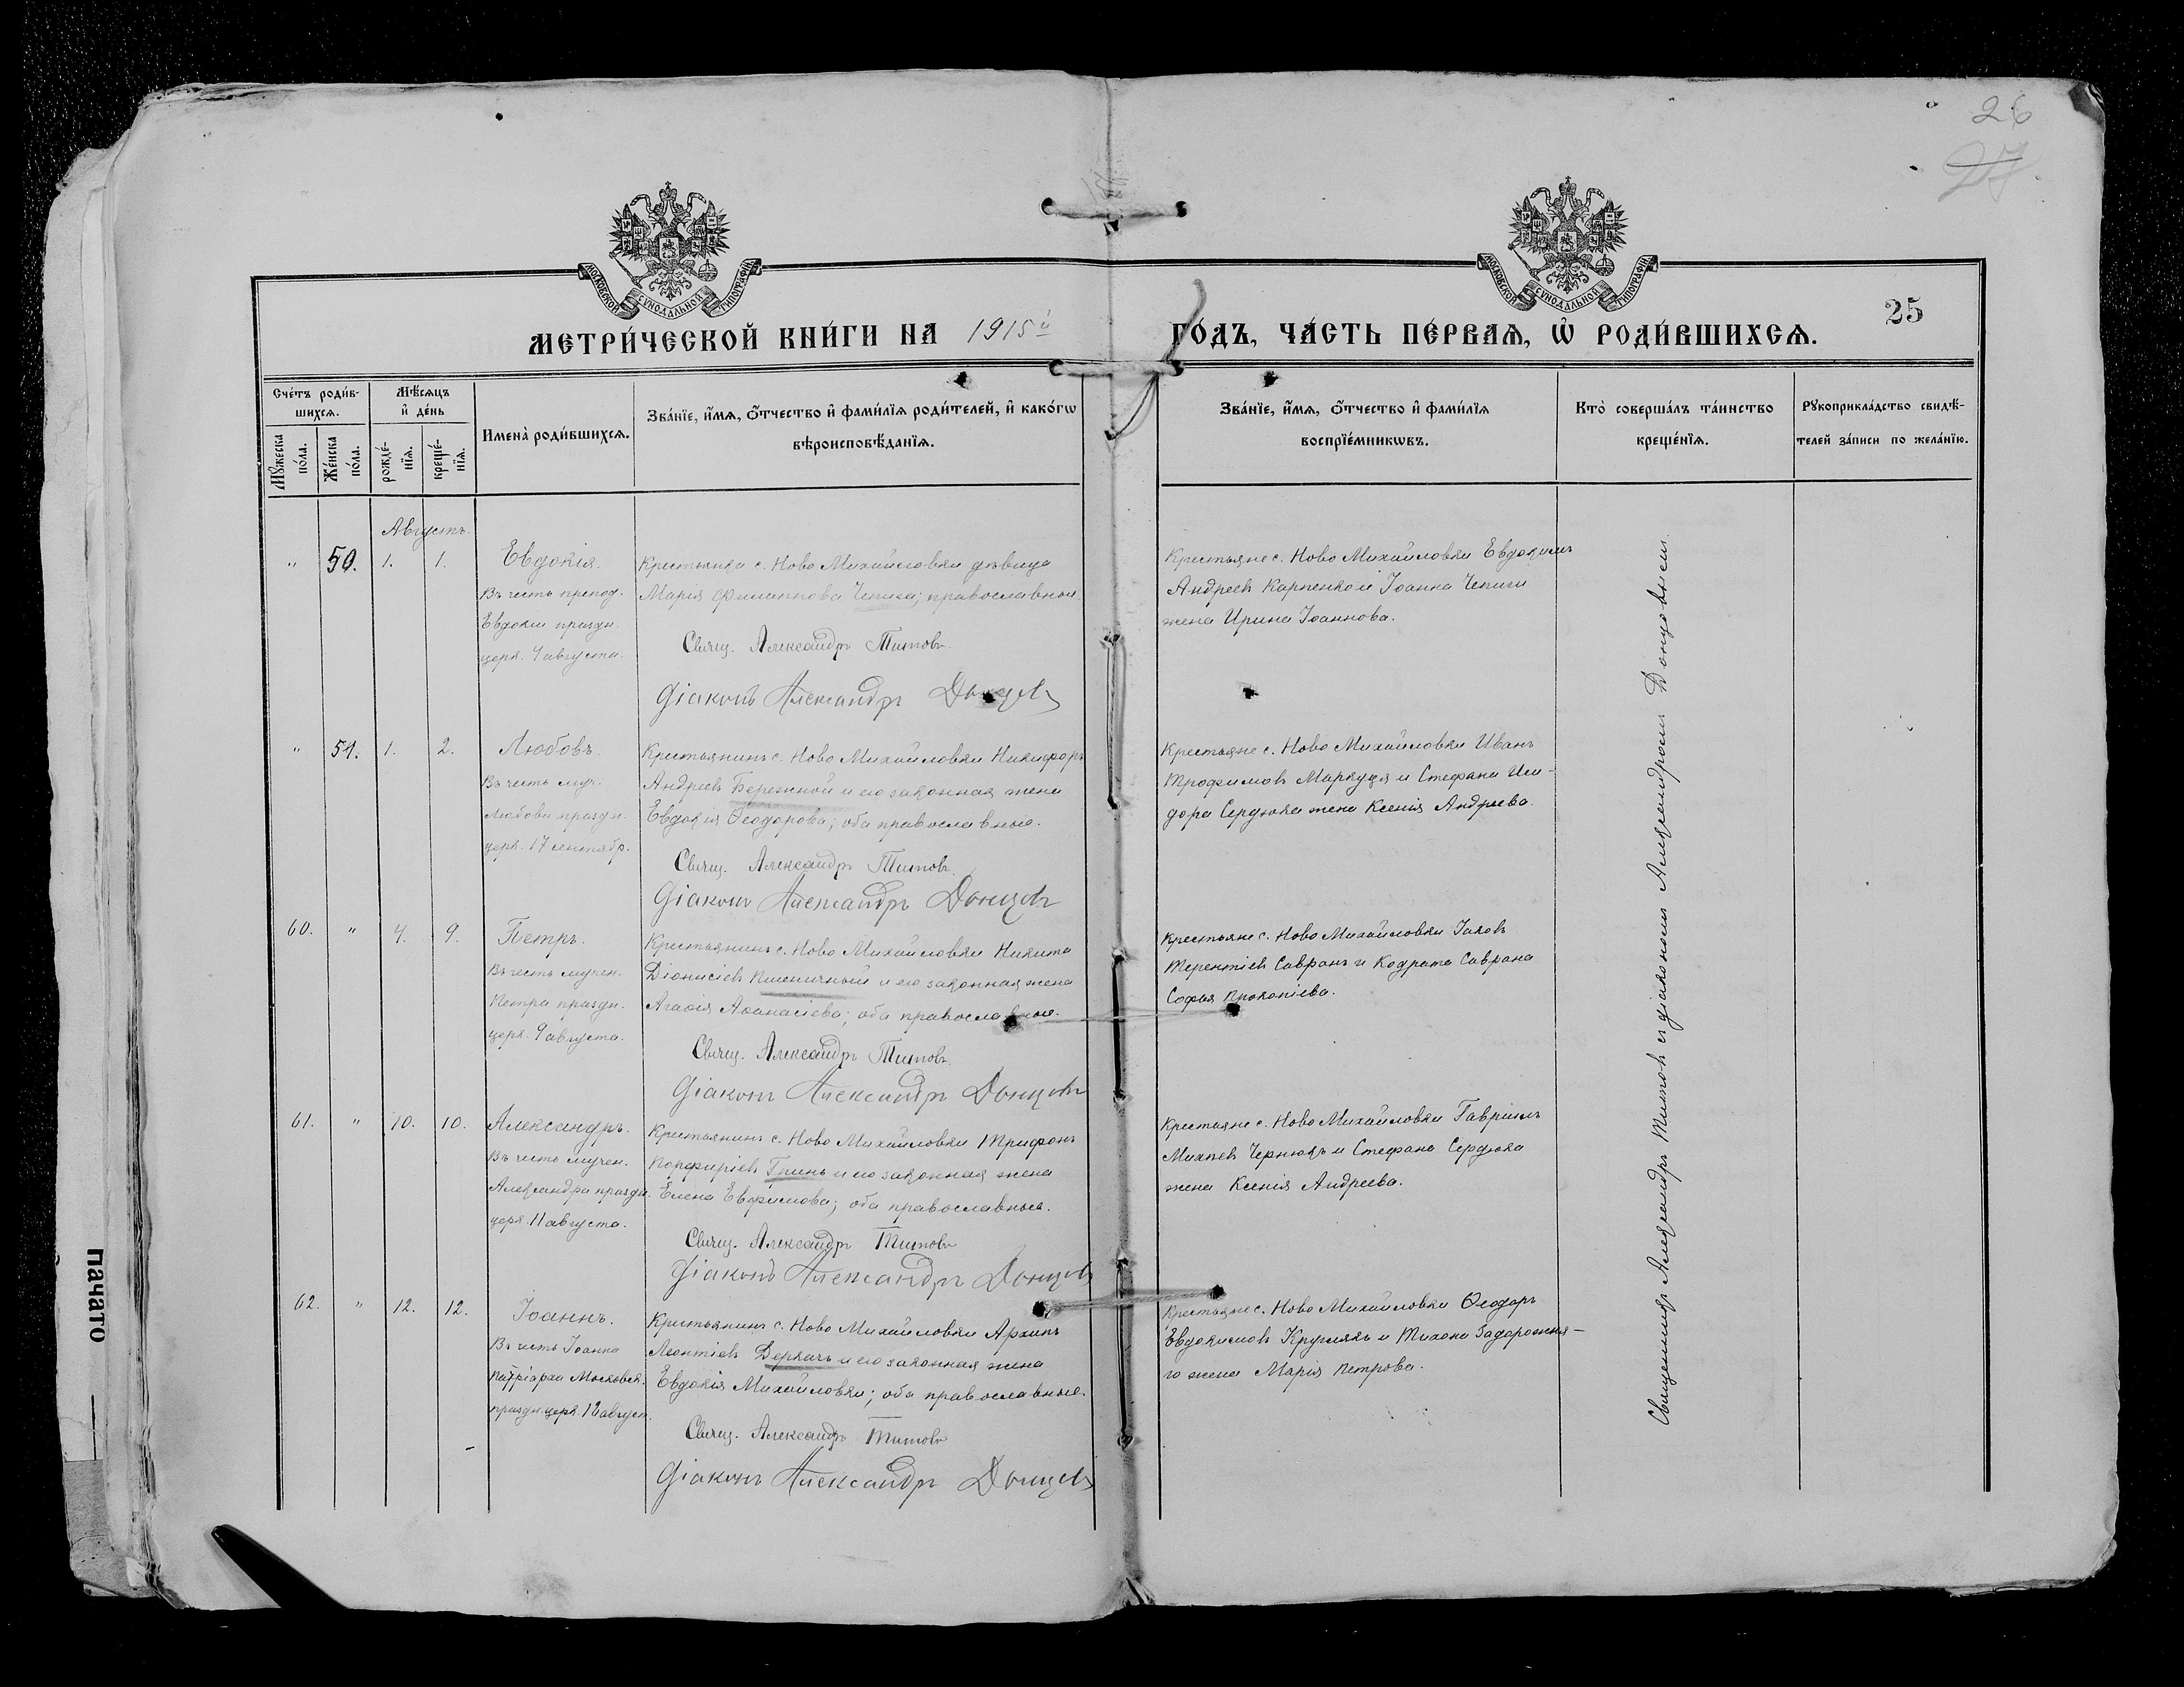 26
27
МОСКОВСКОЙ СУНОДАЛЬНОЙ ТИПОГРАФІИ
МОСКОВСКОЙ СУНОДАЛЬНОЙ ТИПОГРАФІИ
МЕТРИ́ЧЕСКОЙ КНИ́ГИ НА 1915й ГО́ДЪ, ЧА́СТЬ ПЕ́РВАЯ, Ѡ҆ РОДИ́ВШИХСЯ.
25
Сче́тъ роди́в-
шихся.
Мѣ́сяцъ
и҆ де́нь
Мꙋ́жеска
по́ла.
Же́нска
по́ла.
рожде́-
нїя.
креще́-
нїя.
Имена̀ роди́вшихся.
Зва́нїе, и҆́мя, ѻ҆́тчество и҆ фами́лїя роди́телей, и҆ како́гѡ
вѣроисповѣ́данїя.
Зва́нїе, и҆́мя, ѻ҆́тчество и҆ фами́лїя
воспрїе́мникѡвъ.
Кто̀ соверша́лъ та́инство
креще́нїя.
Рꙋкоприкла́дство свидѣ́-
телей за́писи по жела́нїю.
Августъ.
" 50. 1. 1. Евдокія.
Въ честь препод.
Евдокіи праздн.
церк. 4 августа.
Крестьянка с. Ново Михайловки дѣвица
Марія Филиппова Чепига; православная
Свящ. Александръ Титовъ
Діаконъ Александръ Донцовъ
Крестьяне с. Ново Михайловки Евдокимъ
Андреевъ Карпенко и Іоанна Чепиги
жена Ирина Іоаннова.
" 51. 1. 2. Любовь.
Въ честь муч.
Любови праздн.
церк. 17 сентябр.
Крестьянинъ с. Ново Михайловки Никифоръ
Андреевъ Бережной и его законная жена
Евдокія Ѳеодорова; оба православные.
Свящ. Александръ Титовъ
Діаконъ Александръ Донцовъ
Крестьяне с. Ново Михайловки Иванъ
Трофимовъ Маркуця и Стефана Иси-
дора Сердюка жена Ксенія Андреева.
60. " 4. 9. Петръ.
Въ честь мучен.
Петра праздн.
церк. 9 августа.
Крестьянинъ с. Ново Михайловки Никита
Діонисіевъ Пшеничный и его законная жена
Агаѳія Аѳанасіева; оба православные.
Свящ. Александръ Титовъ
Діаконъ Александръ Донцовъ
Крестьяне с. Ново Михайловки Іаковъ
Терентіевъ Савранъ и Кодрата Саврана
Софья Прокопіева.
61. " 10. 10. Александръ.
Въ честь мучен.
Александра праздн.
церк. 11 августа.
Крестьянинъ с. Ново Михайловки Трифонъ
Порфиріевъ Гринь и его законная жена
Елена Евфимова; оба православные.
Свящ. Александръ Титовъ
Діаконъ Александръ Донцовъ
Крестьяне с. Ново Михайловки Гавріилъ
Михеевъ Чернюкъ и Стефана Сердюка
жена Ксенія Андреева.
62. " 12. 12. Іоаннъ.
Въ честь Іоанна
патріарха Московск.
праздн. церк. 18 август.
Крестьянинъ с. Ново Михайловки Архипъ
Леонтіевъ Деркачъ и его законная жена
Евдокія Михайловна; оба православные.
Свящ. Александръ Титовъ
Діаконъ Александръ Донцовъ
Крестьяне с. Ново Михайловки Ѳеодоръ
Евдокимовъ Кругликъ и Тихона Задорожня-
го жена Марія Петрова.
Священникъ Александръ Титовъ съ діакономъ Александромъ Донцовымъ.
ПАЧАТО